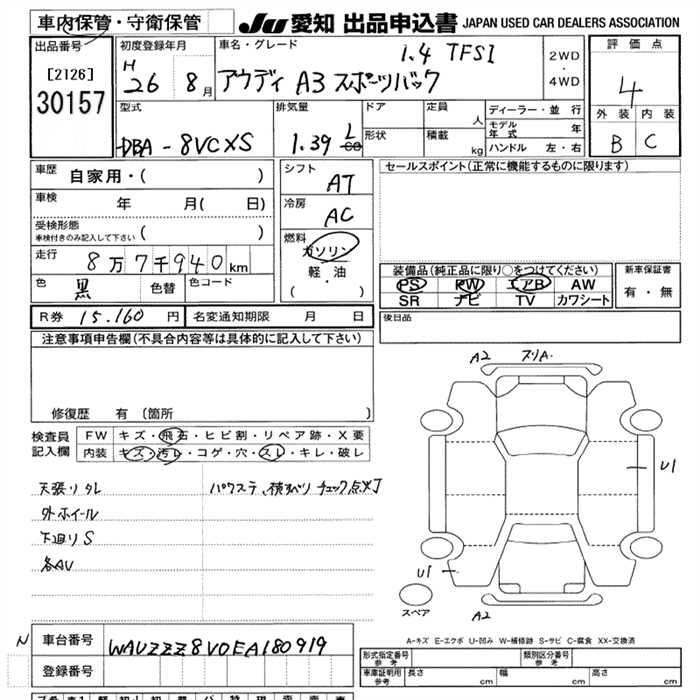 車内保管・守衛保管
JU 愛知 出品申込書 JAPAN USED CAR DEALERS ASSOCIATION
出品番号
[2126]
30157
初度登録年月
H 26 8月
車名・グレード
1.4 TFSI
アウディ A3 スポーツバック
2WD
・
4WD
評価点
4
外装 内装
B C
型式
DBA - 8VCXS
排気量
1.39 L
cc
ドア
形状
定員
人
積載
kg
ディーラー・並行
モデル年式 年
ハンドル 左・右
車歴
自家用・( )
車検
年 月( 日)
受検形態
車検付きのみ記入して下さい ( )
走行
8万7千940km
色
黒
色替
色コード
シフト
AT
冷房
AC
燃料
ガソリン
軽・油
( ・ )
セールスポイント(正常に機能するものに限ります)
装備品(純正品に限り○をつけてください)
PS PW エアB AW
SR ナビ TV カワシート
新車保証書
有・無
後日品
R券 15.160 円
名変通知期限 月 日
注意事項申告欄(不具合内容等は具体的に記入して下さい)
修復歴 有(箇所 )
検査員記入欄
FW キズ・飛石・ヒビ割・リペア跡・X要
内装 キズ・汚レ・コゲ・穴・スレ・キレ・破レ
天張りタレ
パワステ、横すべり チェック点灯
外ホイール
下廻りS
各AU
A2 スリA.
U1
U1
A2
スペア
A-キズ E-エクボ U-凹み W-補修跡 S-サビ C-腐食 XX-交換済
N
車台番号
WAUZZZ8V0EA180919
登録番号
形式指定番号
参考
類別区分番号
参考
車庫証明用
参考
長さ cm
幅 cm
高さ cm